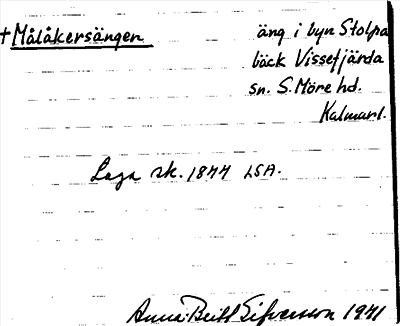 †Målåkersängen äng i byn Stolpa
bäck Vissefjärda
sn. S. Möre hd.
Kalmarl.
Laga sk. 1844 LSA.
Anna-Britt Sifversson 1941